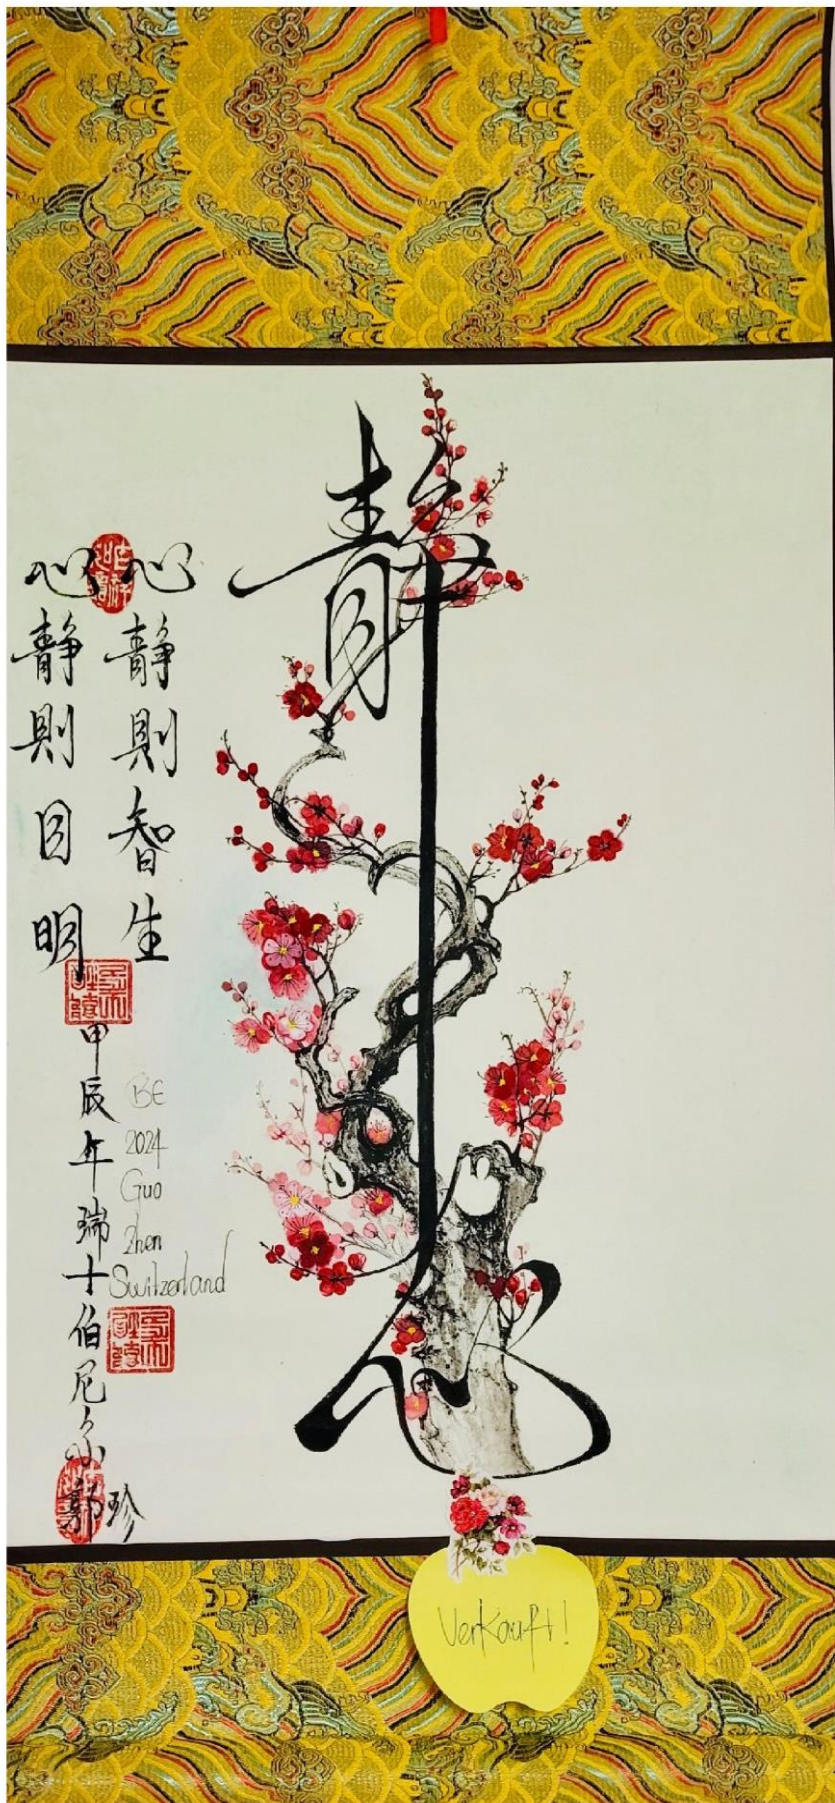 静心
心静則智生
心静則目明
甲辰年瑞士伯尼尔郭珍
BE
2024
Guo
Zhen
Switzerland
Verkauft!